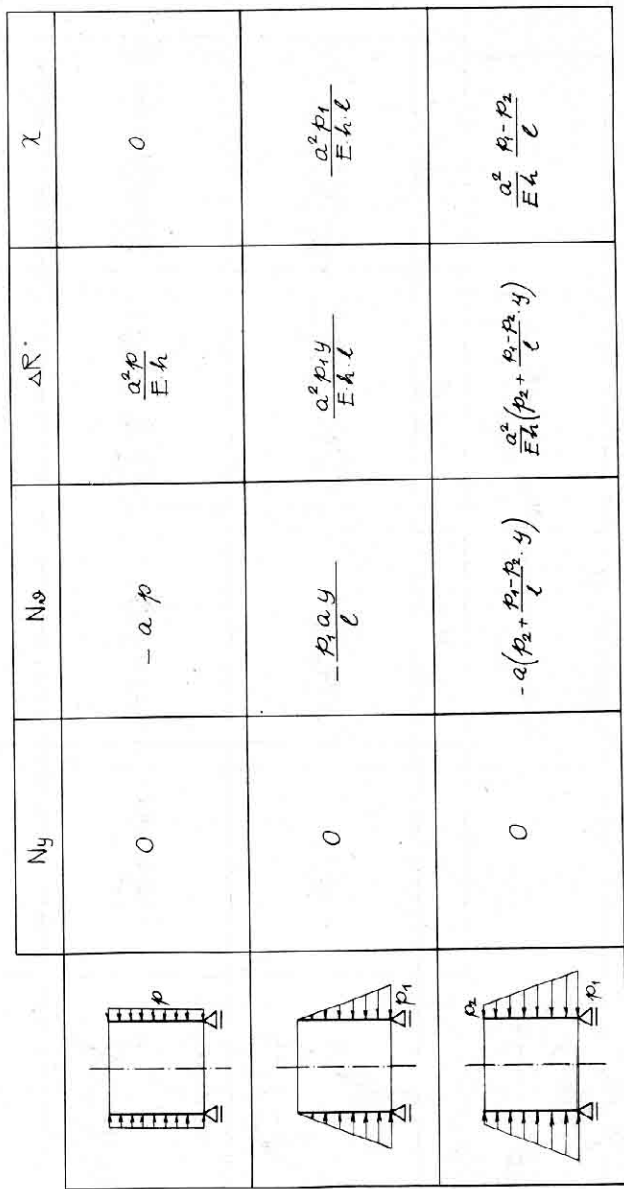 Ny Nϑ ΔR χ
p
0 -a·p \frac{a²p}{E·h} 0
p₁
0 -\frac{p₁ay}{l} \frac{a²p₁y}{E·h·l} \frac{a²p₁}{E·h·l}
p₂
p₁
0 -a(p₂+\frac{p₁-p₂}{l}·y) \frac{a²}{Eh}(p₂+\frac{p₁-p₂}{l}·y) \frac{a²}{Eh} \frac{p₁-p₂}{l}